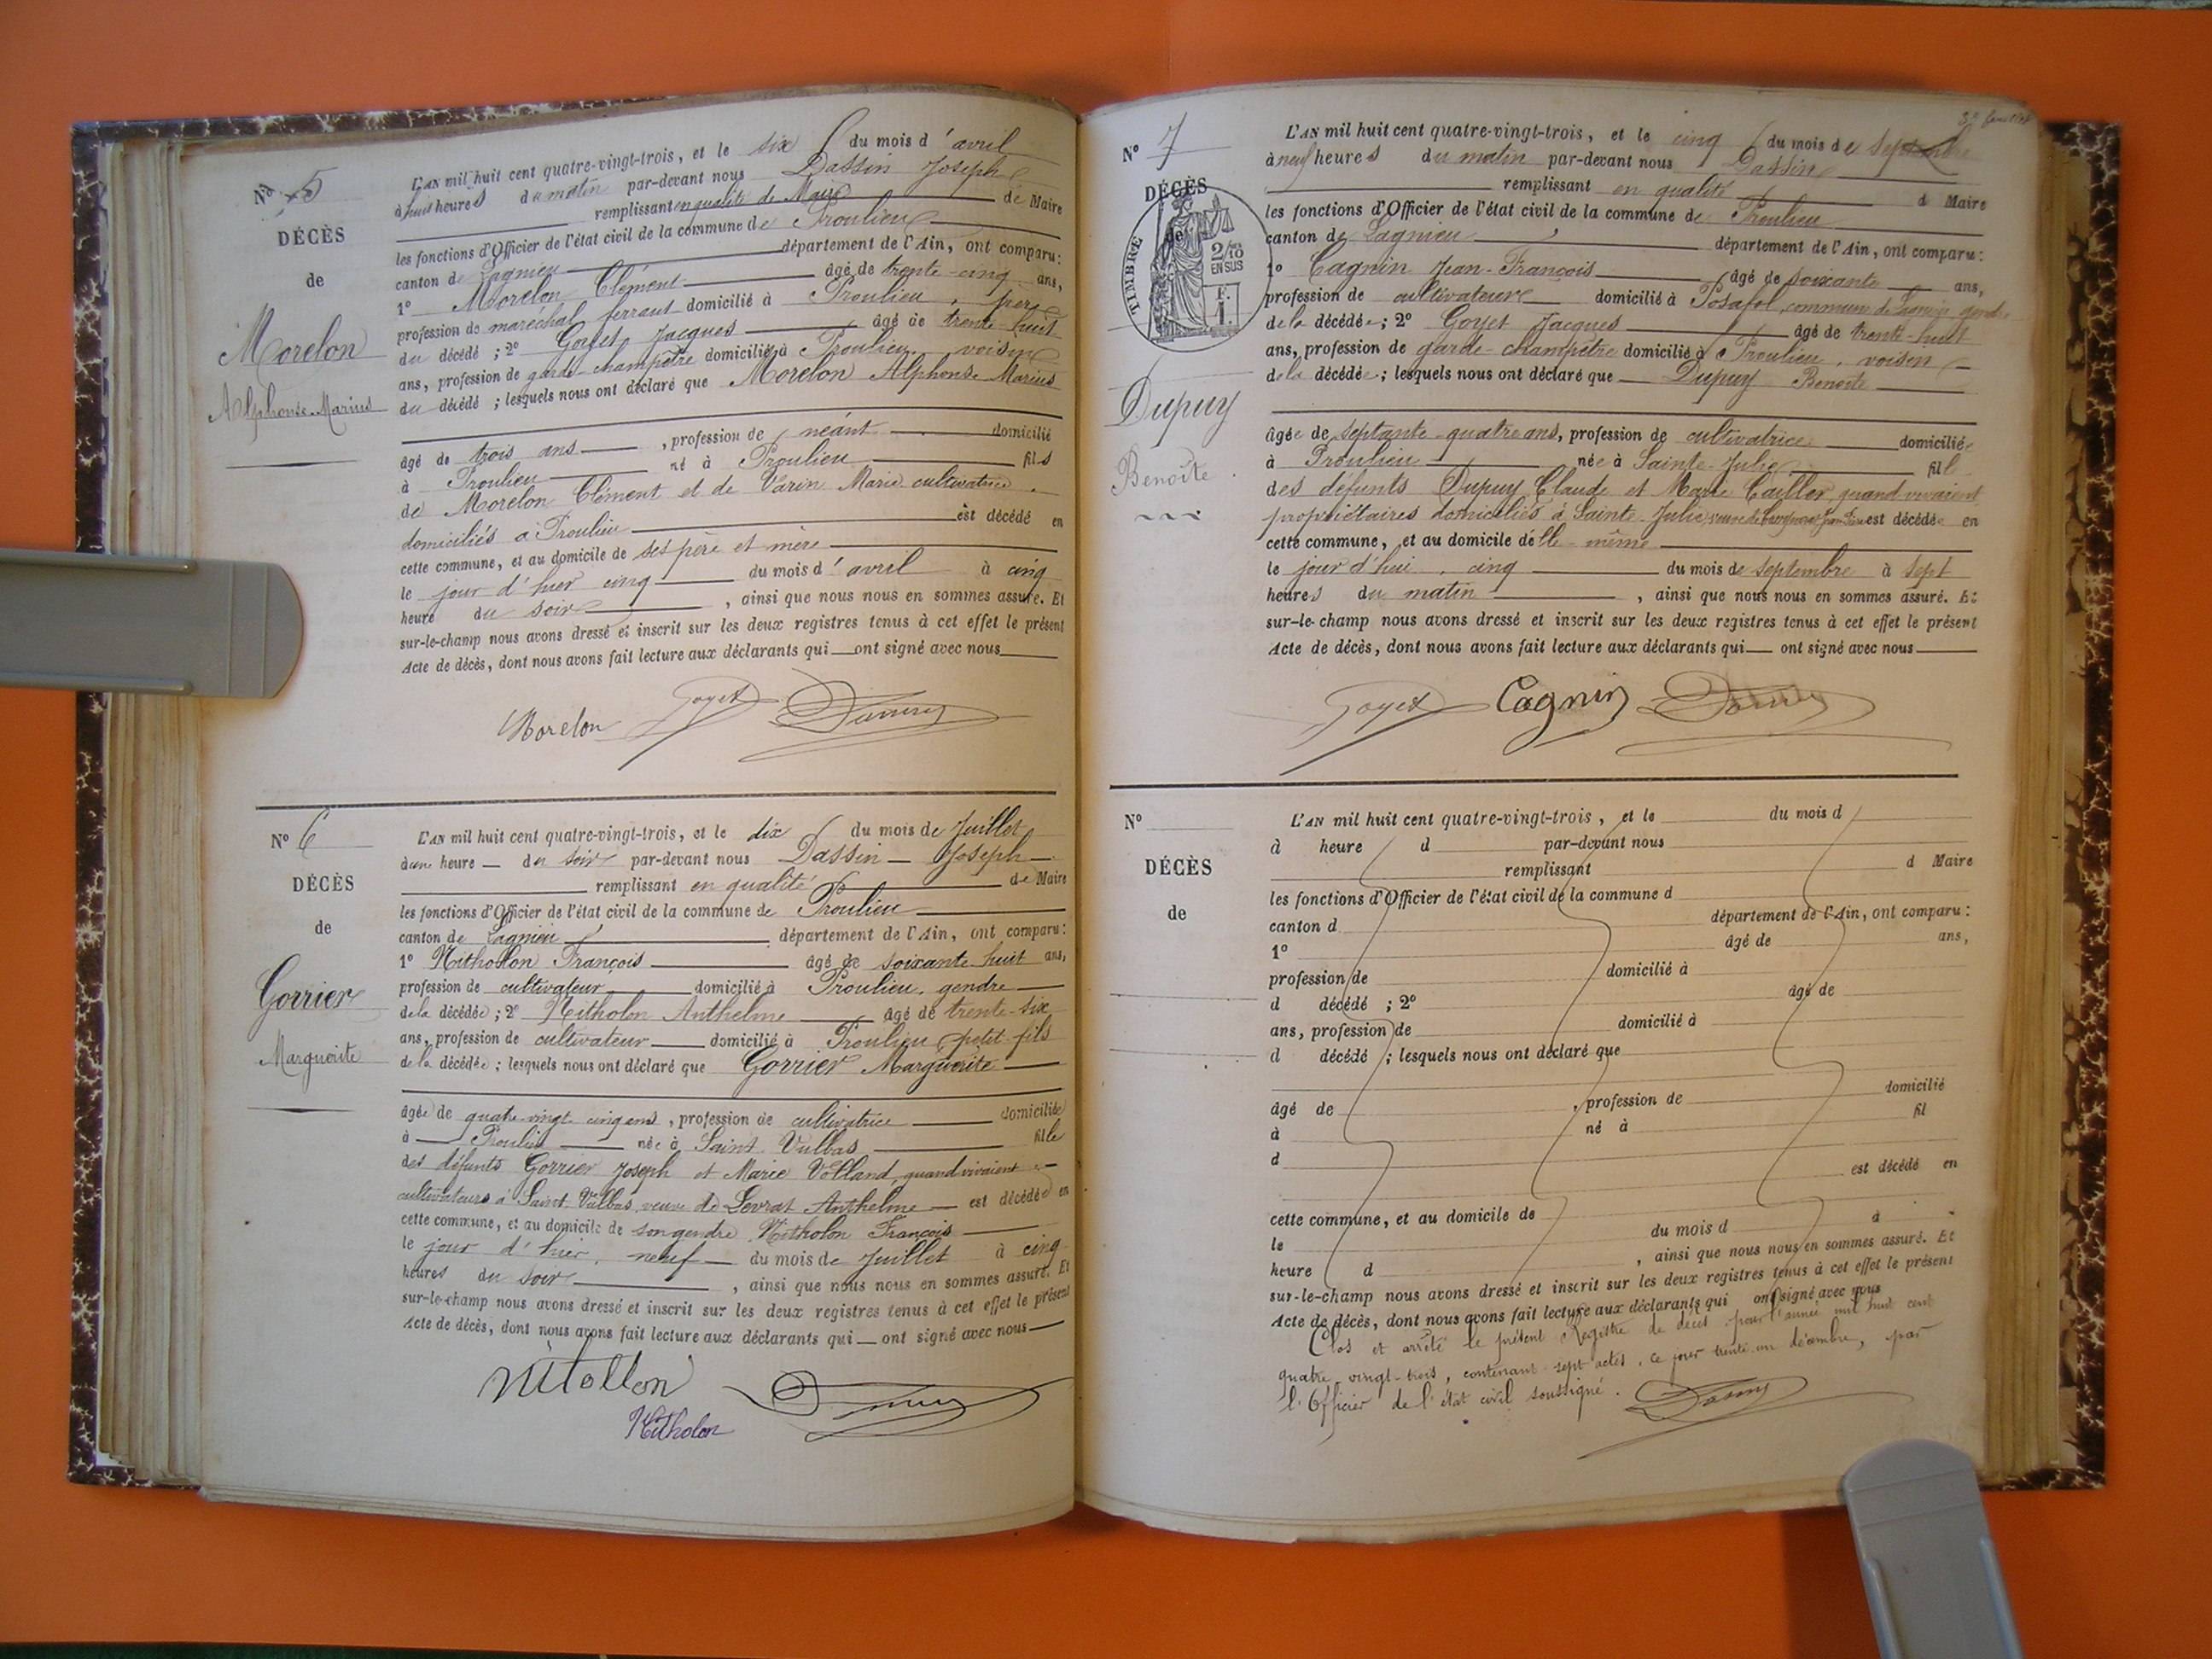 N° 5
DÉCÈS
de
Morelon
Alphonse-Marius
L'AN mil huit cent quatre-vingt-trois, et le six du mois d'avril
à huit heures du matin par-devant nous Dassin Joseph
remplissant en qualité de Maire de Maire
les fonctions d'Officier de l'état civil de la commune de Proulieu
canton de Lagnieu département de l'Ain, ont comparu:
1° Morelon Clément âgé de trente-cinq ans,
profession de maréchal ferrant domicilié à Proulieu, père
du décédé ; 2° Goyet Jacques âgé de trente-huit
ans, profession de garde-champêtre domicilié à Proulieu voisin
du décédé ; lesquels nous ont déclaré que Morelon Alphonse Marius
âgé de trois ans, profession de néant domicilié
à Proulieu né à Proulieu fils
de Morelon Clément et de Varin Marie cultivatrice
domiciliés à Proulieu est décédé en
cette commune, et au domicile de ses père et mère
le jour d'hier cinq du mois d'avril à cinq
heure du soir, ainsi que nous nous en sommes assuré. Et
sur-le-champ nous avons dressé et inscrit sur les deux registres tenus à cet effet le présent
Acte de décès, dont nous avons fait lecture aux déclarants qui ont signé avec nous
Morelon Goyet
N° 6
DÉCÈS
de
Gorrier
Marguerite
L'AN mil huit cent quatre-vingt-trois, et le dix du mois de Juillet
à une heure du soir par-devant nous Dassin Joseph
remplissant en qualité de Maire
les fonctions d'Officier de l'état civil de la commune de Proulieu
canton de Lagnieu département de l'Ain, ont comparu:
1° Nithollon François âgé de soixante-huit ans,
profession de cultivateur domicilié à Proulieu, gendre
de la décédée ; 2° Nitholon Anthelme âgé de trente-six
ans, profession de cultivateur domicilié à Proulieu petit-fils
de la décédée ; lesquels nous ont déclaré que Gorrier Marguerite
âgée de quatre-vingt-cinq ans, profession de cultivatrice domiciliée
à Proulieu née à Saint Vulbas fille
des défunts Gorrier Joseph et Marie Volland, quand vivaient
cultivateurs à Saint Vulbas, veuve de Levrat Anthelme est décédée en
cette commune, et au domicile de son gendre Nitholon François
le jour d'hier, neuf du mois de Juillet à cinq
heures du soir, ainsi que nous nous en sommes assuré. Et
sur-le-champ nous avons dressé et inscrit sur les deux registres tenus à cet effet le présent
Acte de décès, dont nous avons fait lecture aux déclarants qui ont signé avec nous
Nitollon
Nitholon
N° 7
DÉCÈS
de
TIMBRE
2/10
EN SUS
F.
1.
Dupuy
Benoîte
L'AN mil huit cent quatre-vingt-trois, et le cinq du mois de Septembre
à neuf heures du matin par-devant nous Dassin
remplissant en qualité d Maire
les fonctions d'Officier de l'état civil de la commune de Proulieu
canton de Lagnieu département de l'Ain, ont comparu:
1° Cagnin Jean-François âgé de soixante ans,
profession de cultivateur domicilié à Posafol, commune de gendre
de la décédée ; 2° Goyet Jacques âgé de trente-huit
ans, profession de garde-champêtre domicilié à Proulieu, voisin
de la décédée ; lesquels nous ont déclaré que Dupuy Benoîte
âgée de septante-quatre ans, profession de cultivatrice domiciliée
à Proulieu née à Sainte-Julie fill
des défunts Dupuy Claude et Marie Cailler, quand vivaient
propriétaires domiciliés à Sainte-Julie, veuve de est décédée en
cette commune, et au domicile d'elle-même
le jour d'hui, cinq du mois de septembre à sept
heures du matin, ainsi que nous nous en sommes assuré. Et
sur-le-champ nous avons dressé et inscrit sur les deux registres tenus à cet effet le présent
Acte de décès, dont nous avons fait lecture aux déclarants qui ont signé avec nous
Goyet Cagnin
N°
DÉCÈS
de
L'AN mil huit cent quatre-vingt-trois, et le du mois d
à heure d par-devant nous
remplissant d Maire
les fonctions d'Officier de l'état civil de la commune d
canton d département de l'Ain, ont comparu:
1° âgé de ans,
profession de domicilié à
d décédé ; 2° âgé de
ans, profession de domicilié à
d décédé ; lesquels nous ont déclaré que
âgé de, profession de domicilié
à né à fil
d
est décédé en
cette commune, et au domicile de
le du mois d à
heure d, ainsi que nous nous en sommes assuré. Et
sur-le-champ nous avons dressé et inscrit sur les deux registres tenus à cet effet le présent
Acte de décès, dont nous avons fait lecture aux déclarants qui ont signé avec nous
Clos et arrêté le présent Registre de décès pour l'année mil huit cent
quatre-vingt-trois, contenant sept actes, ce jour trente-un décembre, par
l'Officier de l'état civil soussigné.